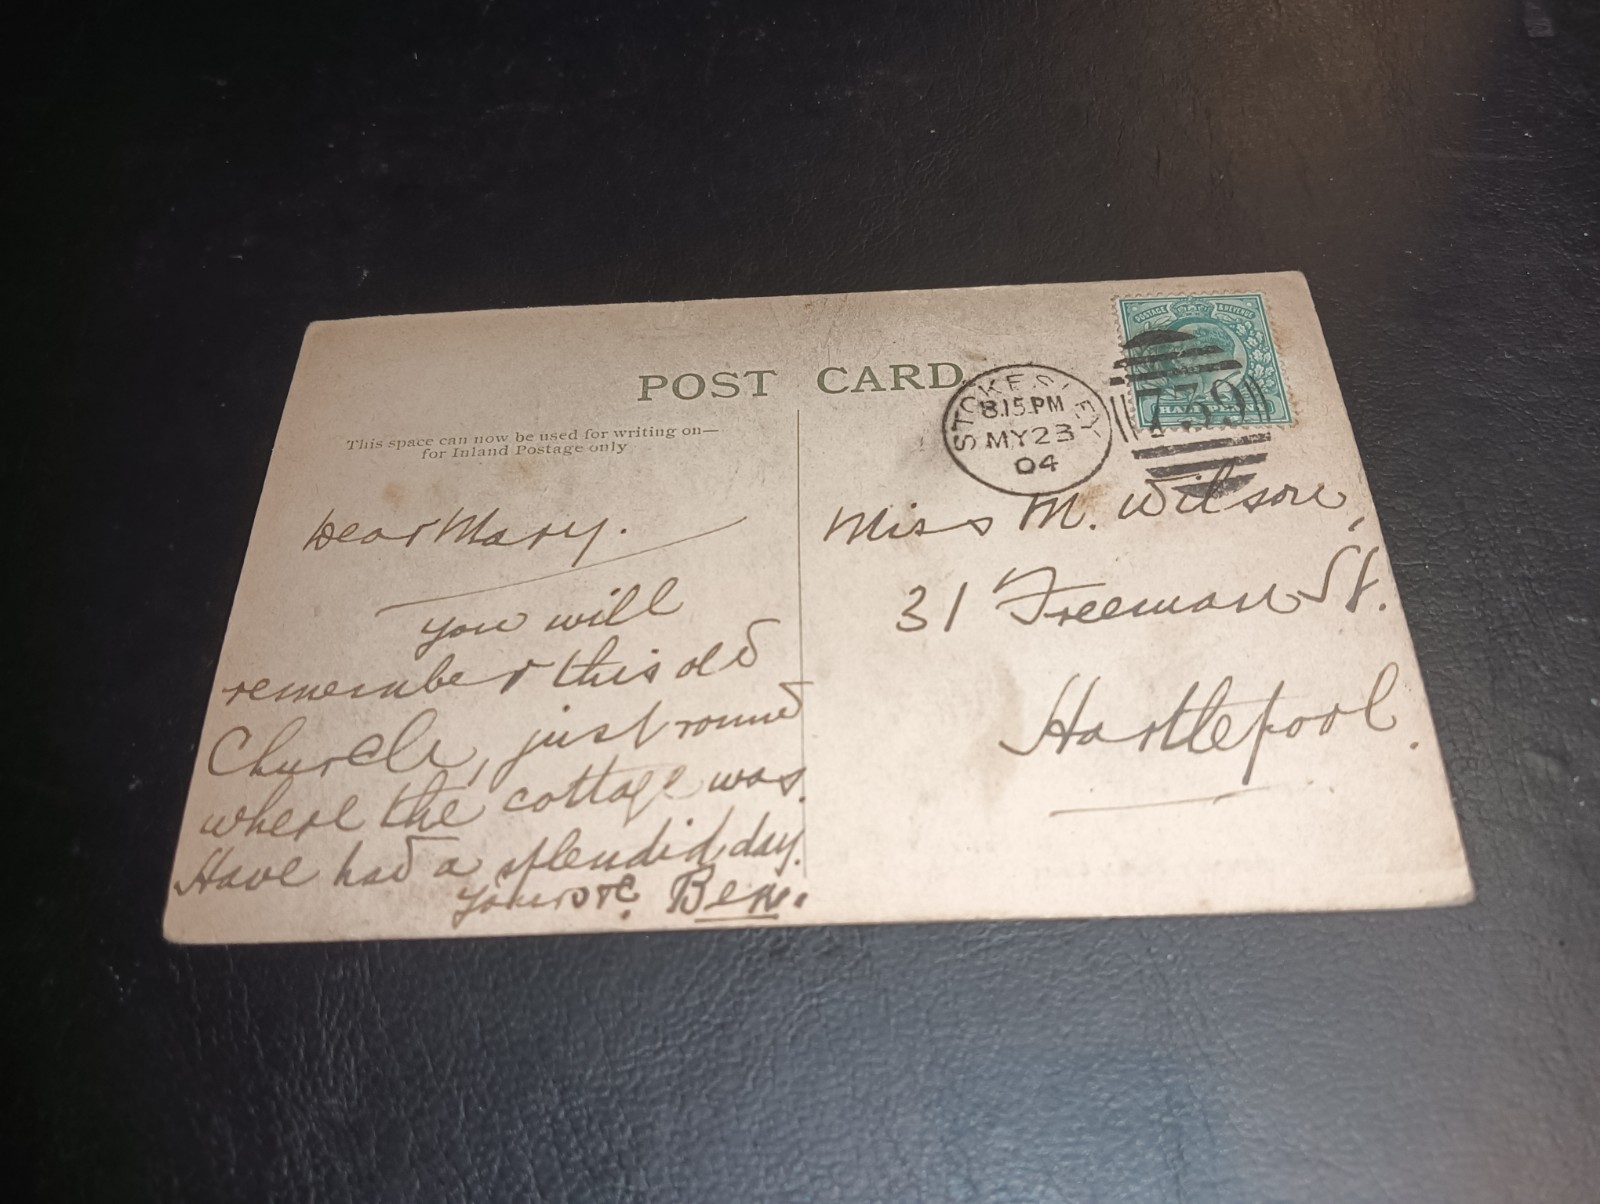 POST CARD
This space can now be used for writing on—
for Inland Postage only
Dear Mary.
you will
remember this old
Church, just round
where the cottage was.
Have had a splendid day.
Yours etc. Ben.
STOKESLEY
8.15.PM
MY23
04
POSTAGE & REVENUE
HALFPENNY
739
Miss M. Wilson,
31 Freeman St.
Hartlepool.